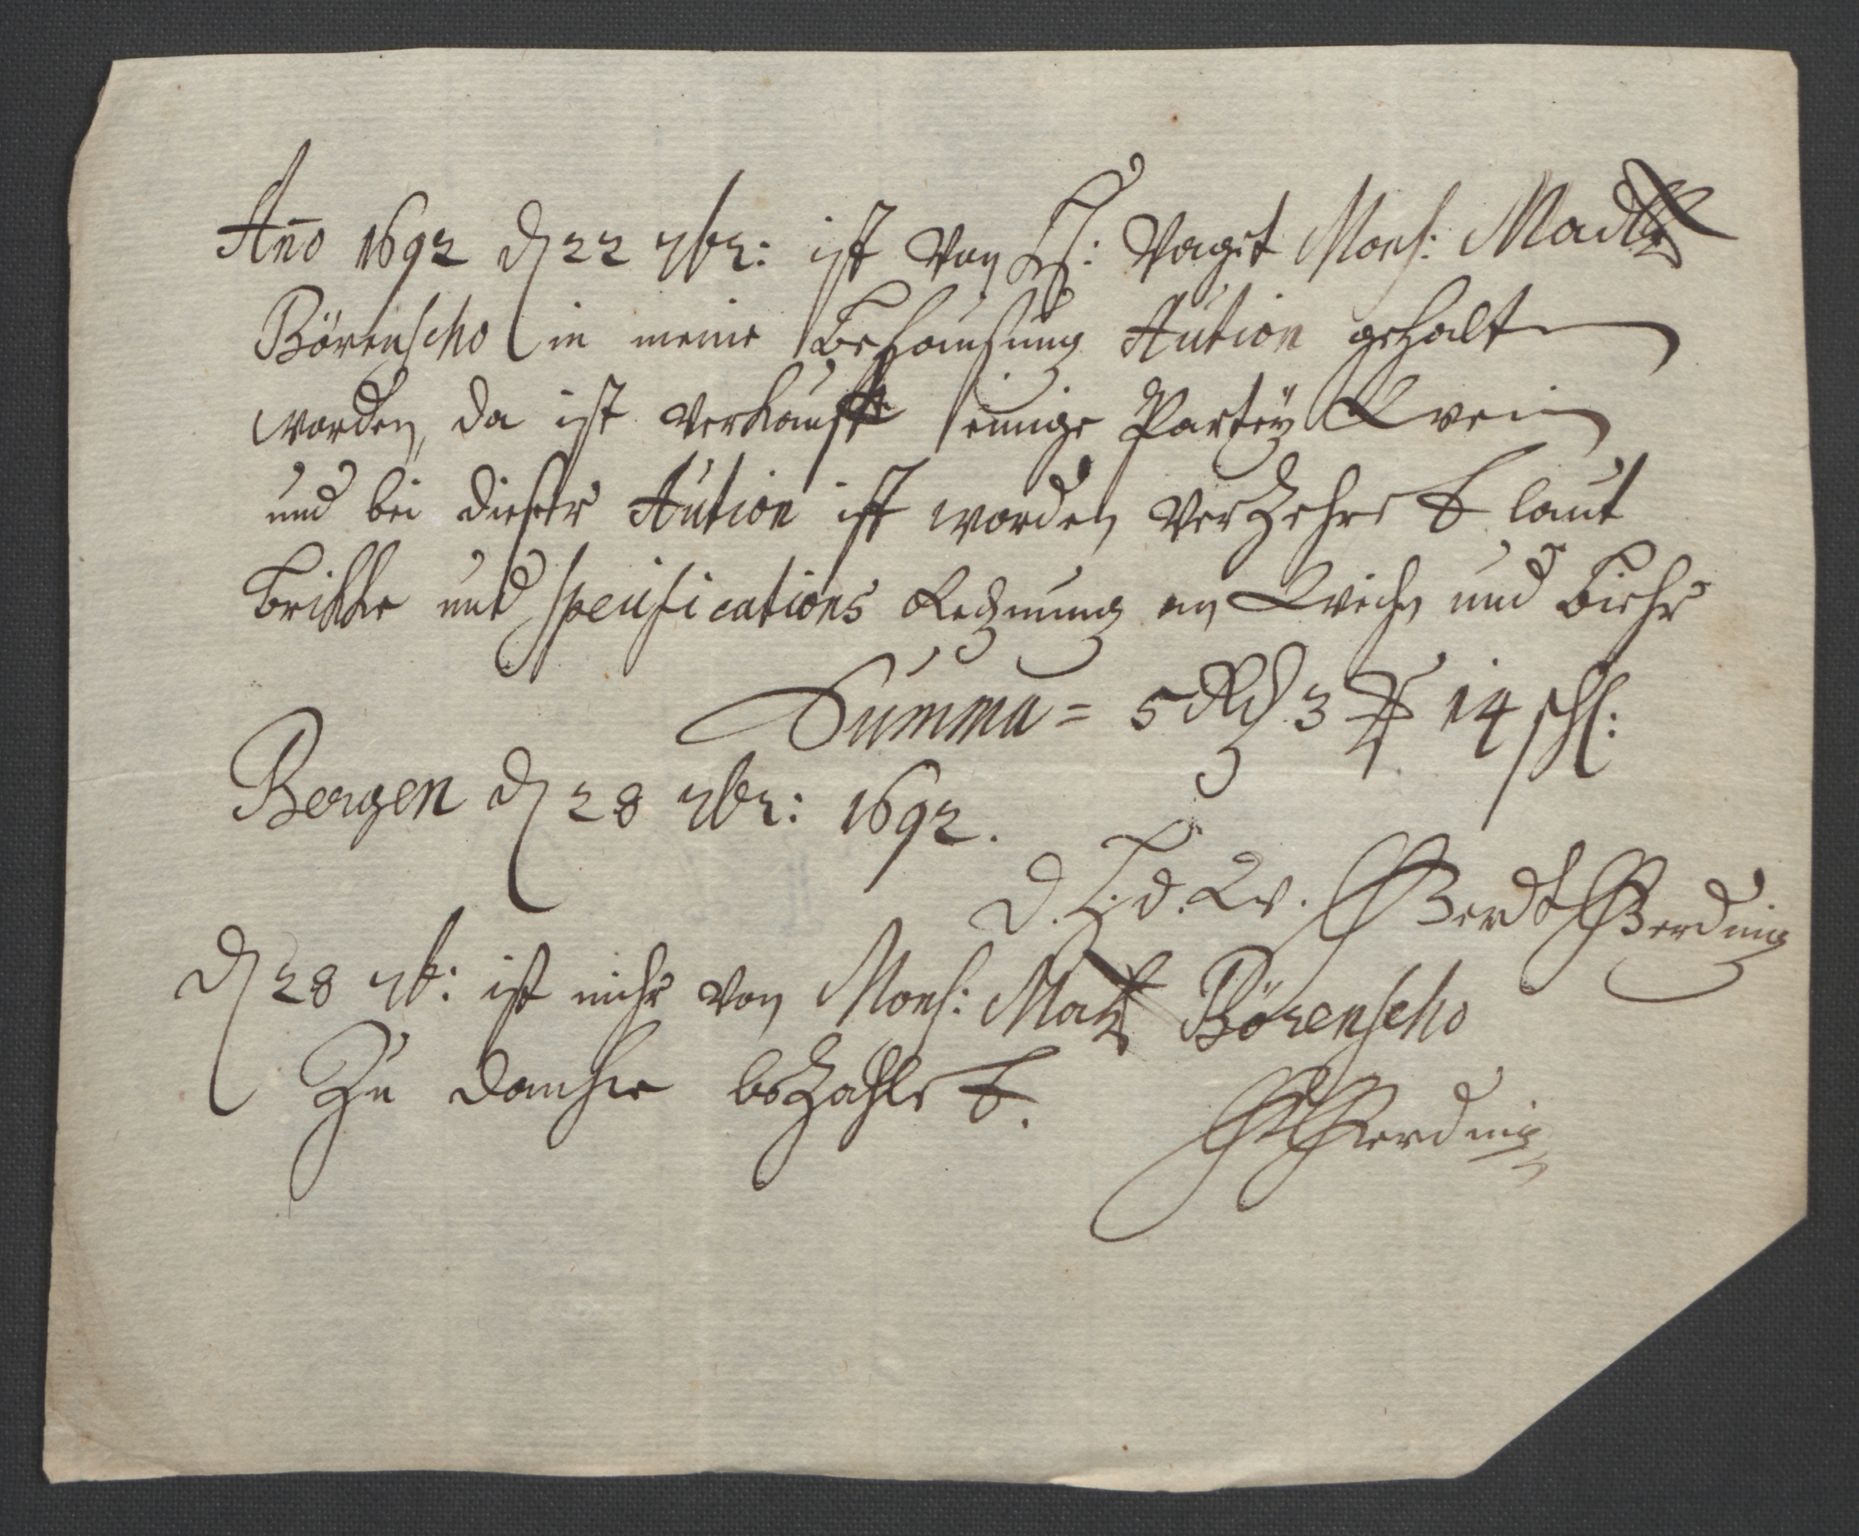 Año 1692 d 22 7br: ist von H: Vaget Mons: Madtz
Börenscho in meine Behausung Aution gehalten
worden, da ist verkaufft einige Partey Wein
und bei dieser Aution ist worden verzehret laut
und Specifications Rechnung an Wein und Biehr
Summa = 5 Rd 3 14 schl:
Bergen d 28 7br: 1692.
D. H: d. W. Gerdt Gerding
d 28 7b: ist mihr von Mons: Matz Börenscho
Zu dancke bezahlet.
G Gerding